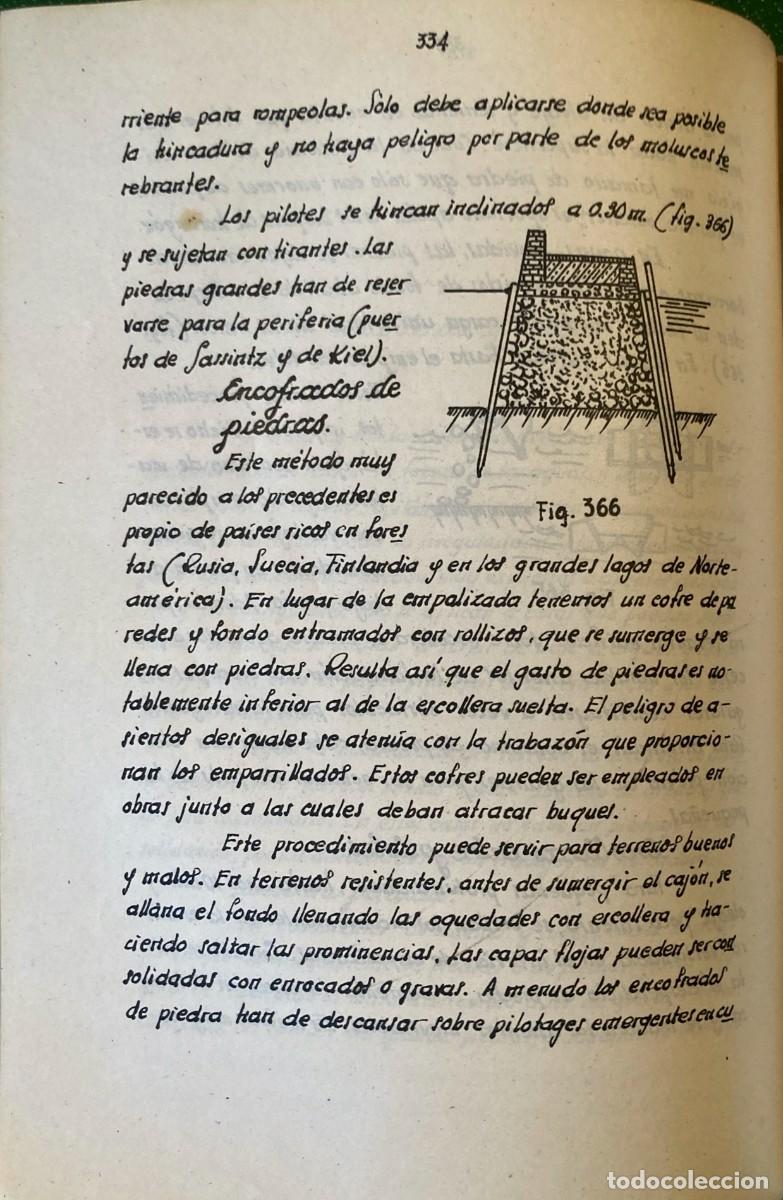 334
rriente para rompeolas. Sólo debe aplicarse donde sea posible
la hincadura y no haya peligro por parte de los moluscos te
rebrantes.
Los pilotes se hincan inclinados a 0.30 m. (fig. 366)
y se sujetan con tirantes. Las
piedras grandes han de reser
varse para la periferia (puer
tos de Sassintz y de Kiel).
Encofrados de
piedras.
Este método muy
parecido a los precedentes es
propio de países ricos en fores
tas (Rusia, Suecia, Finlandia y en los grandes lagos de Norte-
américa). En lugar de la empalizada tenemos un cofre de pa
redes y fondo entramados con rollizos, que se sumerge y se
llena con piedras. Resulta así que el gasto de piedras es no-
tablemente inferior al de la escollera suelta. El peligro de a-
sientos desiguales se atenúa con la trabazón que proporcio-
nan los emparrillados. Estos cofres pueden ser empleados en
obras junto a las cuales deban atracar buques.
Este procedimiento puede servir para terrenos buenos
y malos. En terrenos resistentes, antes de sumergir el cajón, se
allàna el fondo llenando las oquedades con escollera y ha-
ciendo saltar las prominencias. Las capas flojas pueden ser con
solidadas con enrocados o gravas. A menudo los encofrados
de piedra han de descansar sobre pilotages emergentes en cu
Fig. 366
todocoleccion